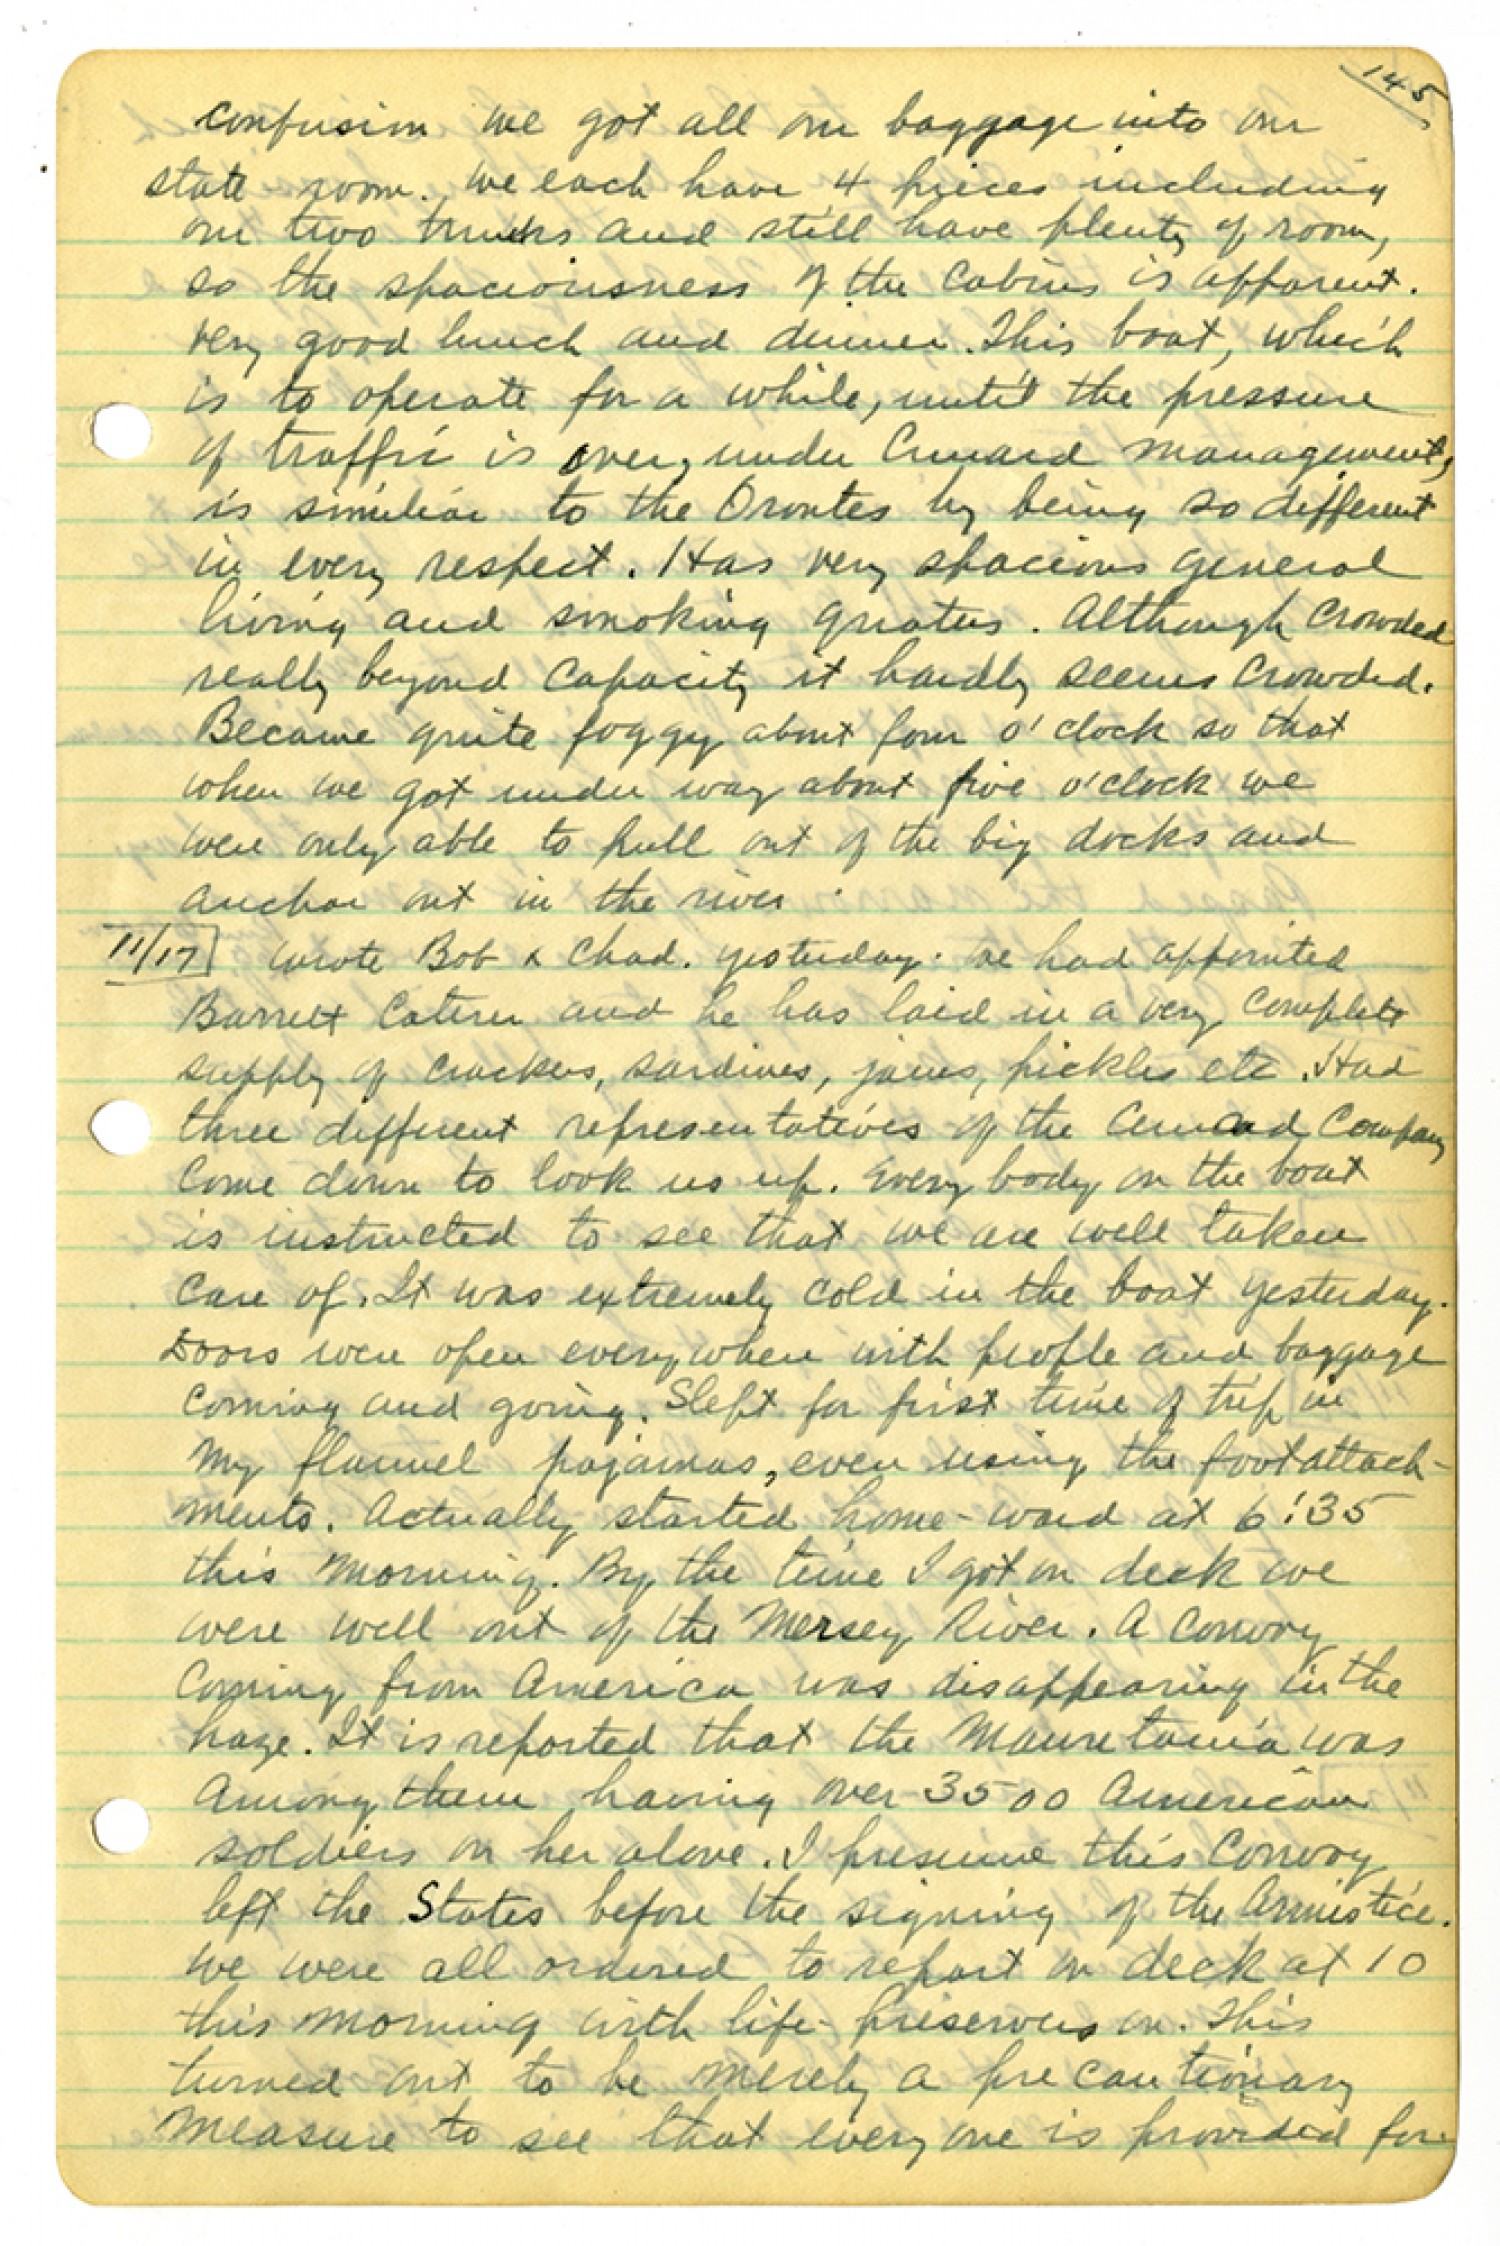 145
confusion we got all our baggage into our
state room. We each have 4 pieces including
our two trunks and still have plenty of room,
so the spaciousness of the cabins is apparent.
Very good lunch and dinner. This boat, which
is to operate for a while, until the pressure
of traffic is over, under Cunard management,
is similiar to the Orontes by being so different
in every respect. Has very spacious general
living and smoking quarters. Although crowded
really beyond capacity it hardly seems crowded.
Became quite foggy about four o'clock so that
when we got under way about five o'clock we
were only able to pull out of the big docks and
anchor out in the river.
11/17 Wrote Bob & Chad. yesterday. We had appointed
Barrett Caterer and he has laid in a very complete
supply of crackers, sardines, jams, pickles etc. Had
three different representatives of the Cunard Company
come down to look us up. Every body on the boat
is instructed to see that we are well taken
care of. It was extremely cold in the boat yesterday.
Doors were open everywhere with people and baggage
coming and going. Slept for first time of trip in
my flannel pajamas, even using the foot attach-
ments. Actually started home-ward at 6:35
this morning. By the time I got on deck we
were well out of the Mersey River. A convoy
coming from America was disappearing in the
haze. It is reported that the Mauretania was
among them having over 3500 American
soldiers on her alone. I presume this convoy
left the States before the signing of the Armistice.
We were all ordered to report on deck at 10
this morning with life-preservers on. This
turned out to be merely a precautionary
measure to see that every one is provided for